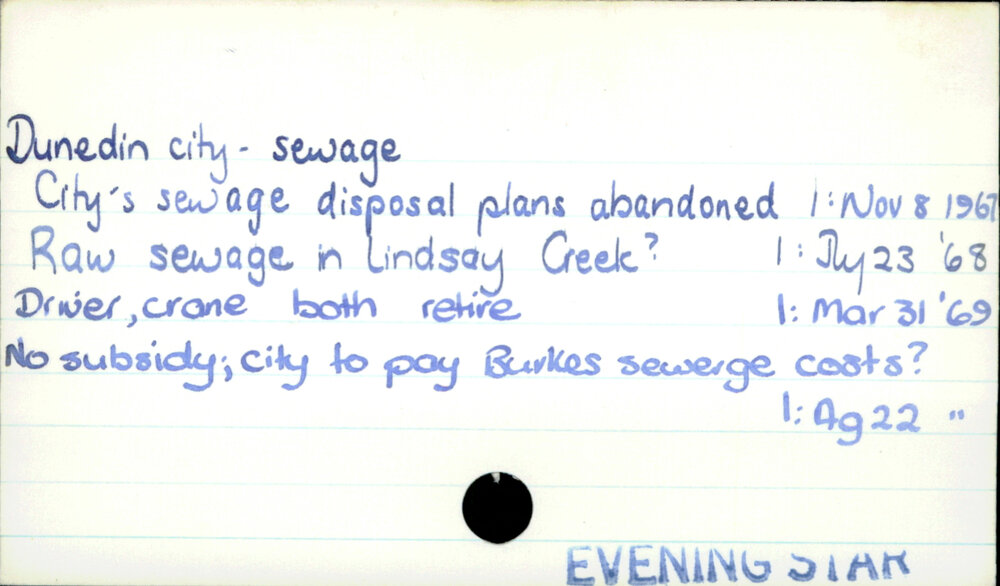 Dunedin city - sewage
City's sewage disposal plans abandoned 1: Nov 8 1967
Raw sewage in Lindsay Creek? 1: Jly 23 '68
Driver, crane both retire 1: Mar 31 '69
No subsidy; city to pay Burkes sewerge costs?
1: Ag 22 "
EVENING STAR